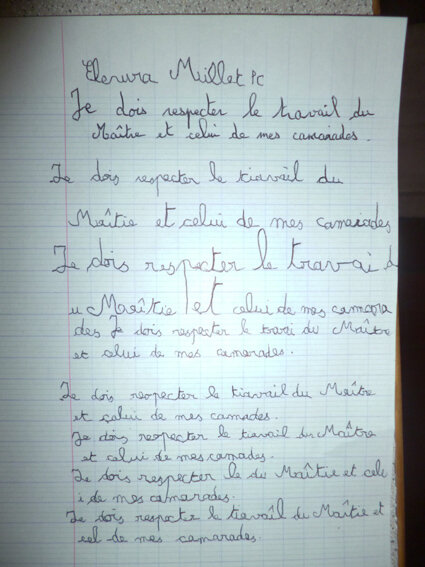 Elenura Millet PC
Je dois respecter le travail du
Maître et celui de mes camarades.
Je dois respecter le travail du
Maîtie et celui de mes camaiades
Je dois respecter le travai d
u Maîtie et celui de mes camara
des Je dois respecter le travi du Maître
et celui de mes camarades.
Je dois respecter le tiavail du Maître
et celui de mes camades.
Je dois respecter le tiavail du Maître
et celui de mes camades.
Je dois respecter le du Maîtie et cele
i de mes camarades.
Je dois respecter le tiavail du Maîtie et
cel de mes camarades.